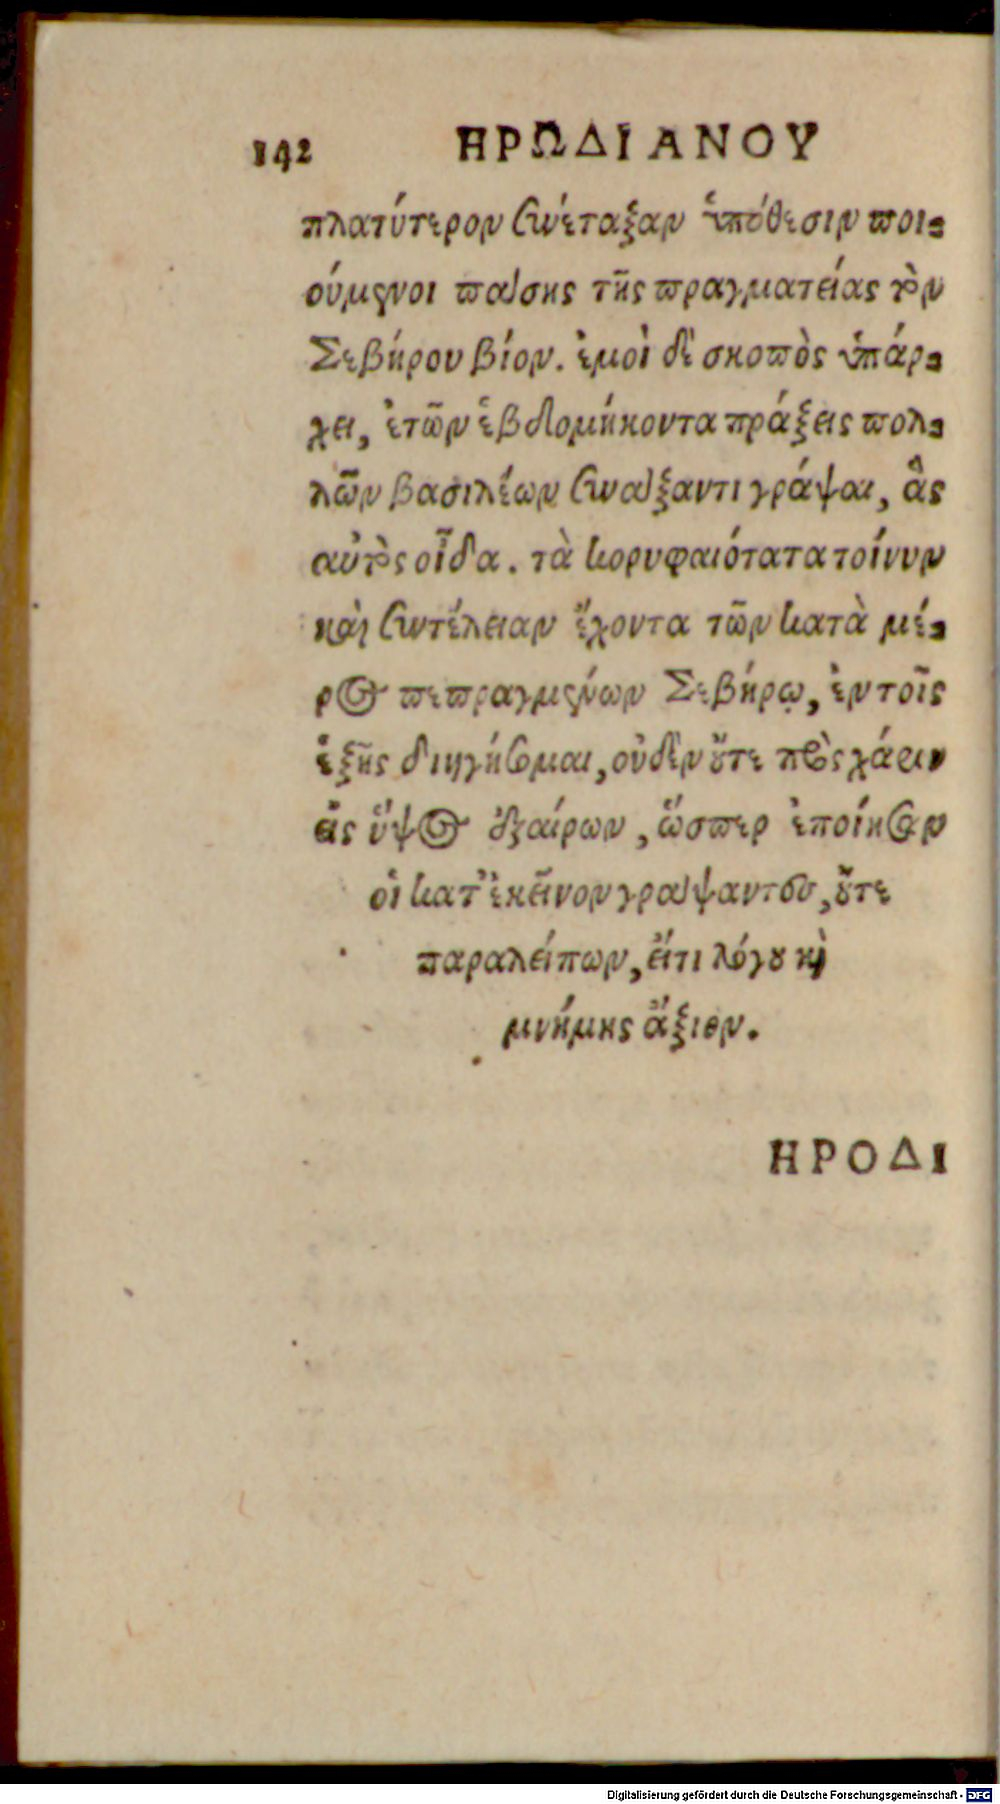 142 ΗΡΩΔΙΑΝΟΥ
πλατύτερον συνέταξαν ὑπόθεσιν ποι-
ούμενοι πάσης τῆς πραγματείας τὸν
Σεβήρου βίον. ἐμοὶ δὲ σκοπὸς ὑπάρ-
χει, ἐτῶν ἑβδομήκοντα πράξεις πολ-
λῶν βασιλέων συνάξαντι γράψαι, ἃς
αὐτὸς οἶδα. τὰ κορυφαιότατα τοίνυν
καὶ συντέλειαν ἔχοντα τῶν κατὰ μέ-
ρος πεπραγμένων Σεβήρῳ, ἐν τοῖς
ἑξῆς διηγήσομαι, οὐδὲν ὔτε πρὸς χάριν
εἰς ὕψος ἐξαίρων, ὥσπερ ἐποίησαν
οἱ κατ᾽ ἐκεῖνον γράψαντες, ὔτε
παραλείπων, εἴτι λόγου καὶ
μνήμης ἄξιον.
ΗΡΟΔΙ
Digitalisierung gefördert durch die Deutsche Forschungsgemeinschaft - DFG